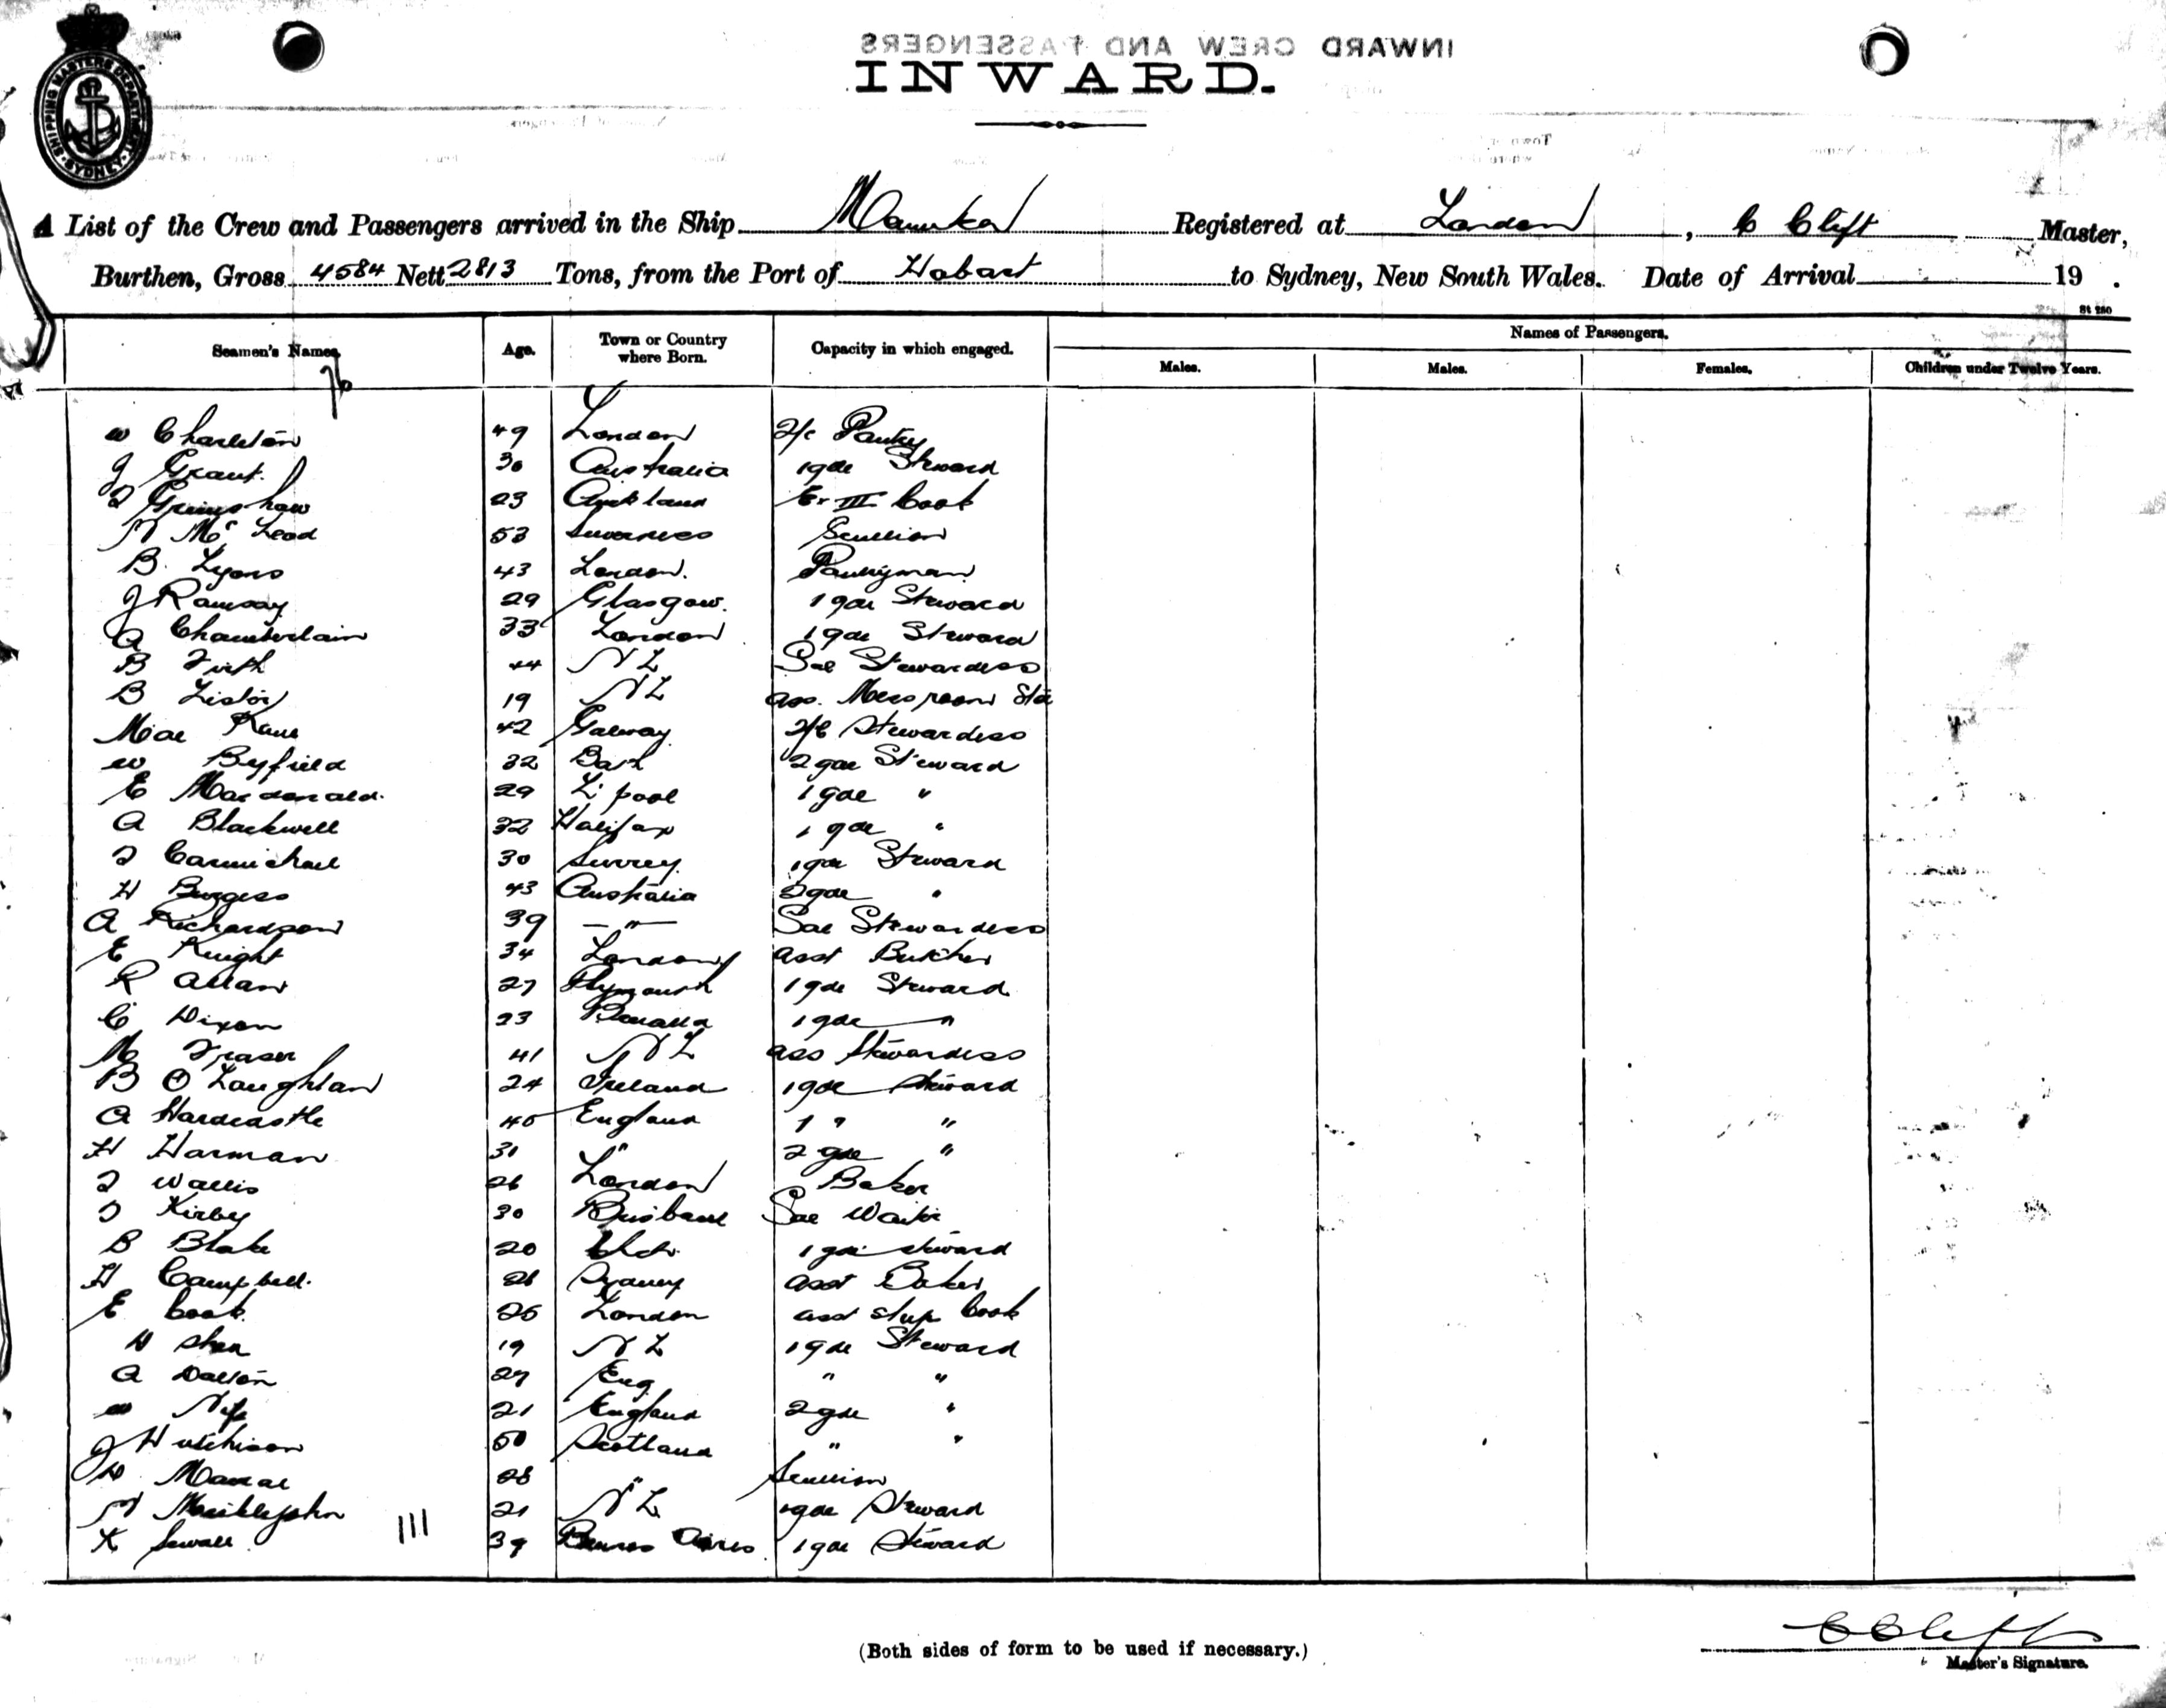 SHIPPING MASTERS DEPARTMENT SYDNEY
INWARD CREW AND PASSENGERS
INWARD.
A List of the Crew and Passengers arrived in the Ship Manuka Registered at London, C Clift Master,
Burthen, Gross 4584 Nett 2813 Tons, from the Port of Hobart to Sydney, New South Wales. Date of Arrival 19 .
St 250
Names of Passengers.
Seamen's Names. Age. Town or Country where Born. Capacity in which engaged. Males. Males. Females. Children under Twelve Years.
76
W Charleton 49 London 2/c Pantry
J Grant. 30 Australia 1 gde Steward
T Grimshaw 23 Auckland Ex III Cook
N Mc Leod 53 Inverness Scullion
B. Lyons 43 London. Pantryman
J Ramsay 29 Glasgow. 1 gde Steward
A Chamberlain 33 London 1 gde Steward
B Firth 44 N Z Sal Stewardess
B Lister 19 N Z ass. Messroom Std
Mae Kane 42 Galway 2/c Stewardess
W Byfield 32 Bath 2 gde Steward
E Macdonald. 29 L'pool 1 gde "
A Blackwell 32 Halifax 1 gde "
T Carmichael 30 Surrey. 1 gde Steward
H Burgess 43 Australia 2 gde "
A Richardson 39 — " — Sal Stewardess
E Knight 34 London asst Butcher
R Allan 27 Plymouth 1 gde Steward
C Dixon 23 1 gde "
M Fraser 41 N Z ass Stewardess
B O Laughlan 24 Ireland 1 gde Steward
A Hardcastle 45 England 1 " "
H Harman 31 " 2 gde "
T Wallis 26 London Baker
T Kirby 30 Brisbane Sal Waiter
B Blake 20 1 gde Steward
H Campbell. 26 Sydney asst Baker
E Cook. 26 London asst ships Cook
H Shea 19 N Z 1 gde Steward
A Dalton 27 Eng " "
W 21 England 2 gde "
J Hutchison 50 Scotland " "
28 " Scullion
N Meiklejohn 21 N Z 1 gde Steward
K Sewell 39 Buenos Aires 1 gde Steward
111
C Clift
(Both sides of form to be used if necessary.)
Master's Signature.